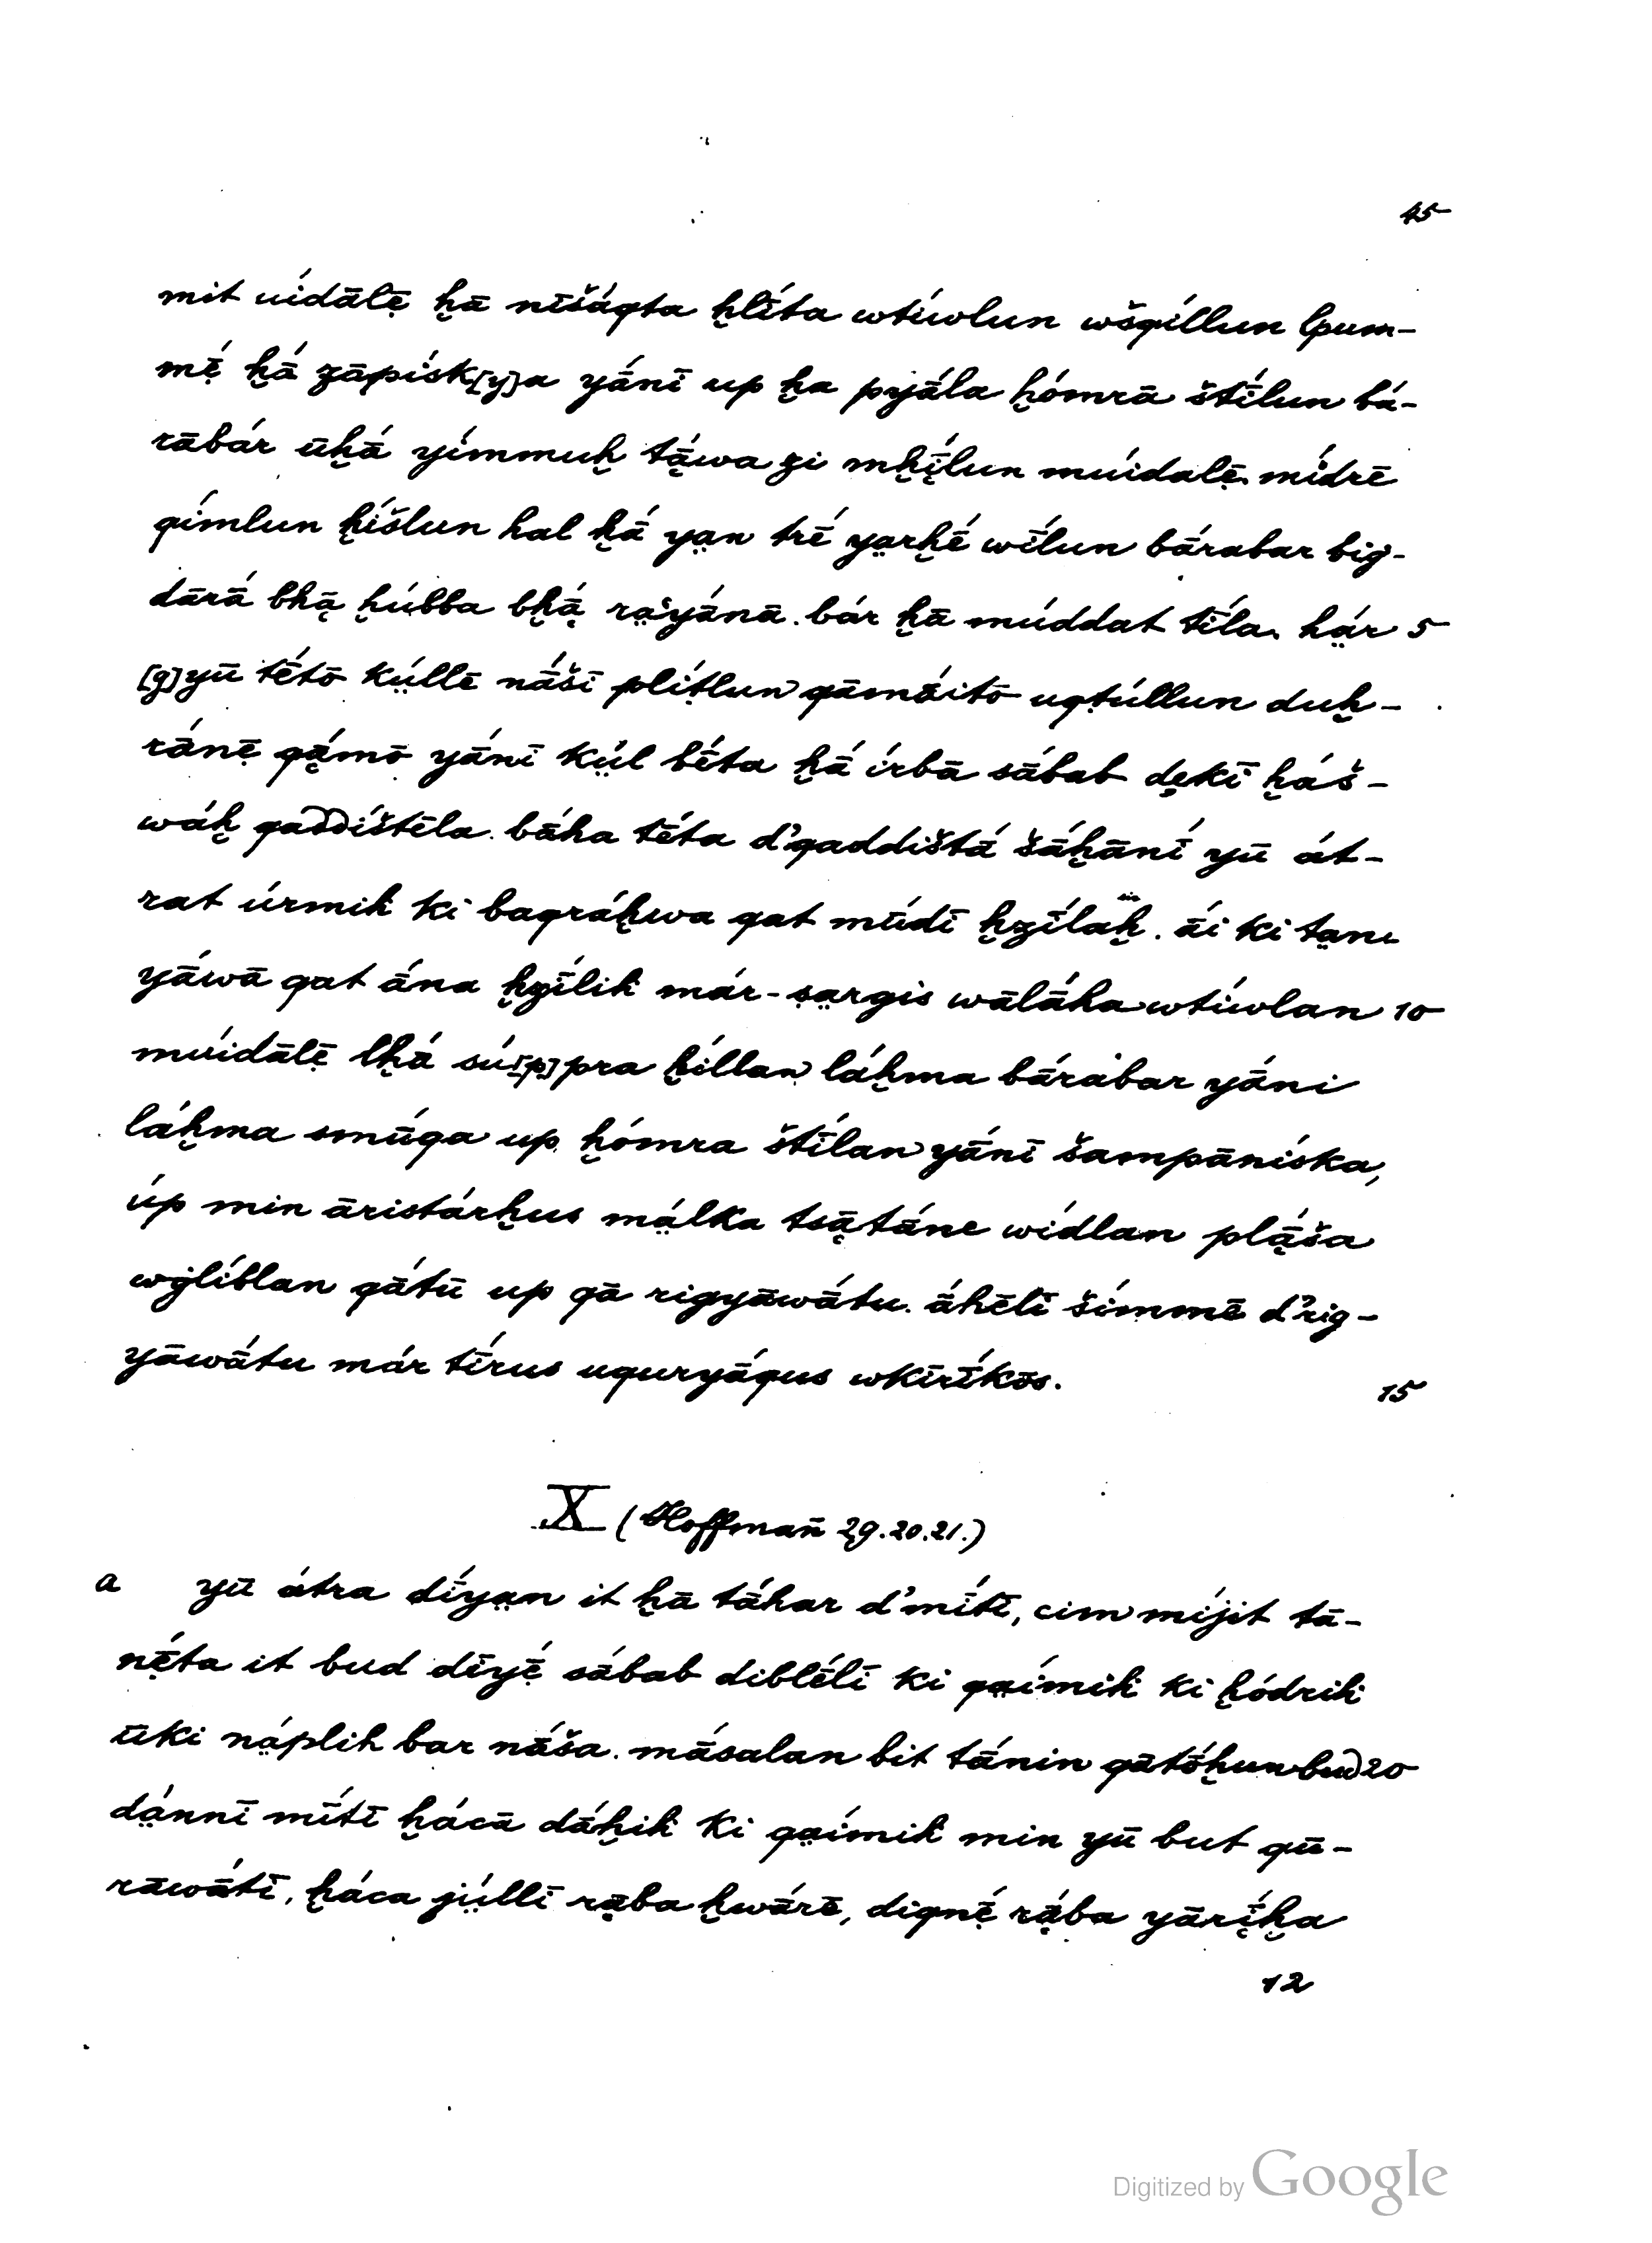 45
mit uídālẹ̄ ḫā nīšáqta ḫlī́ta wtíwlun wšqíllun lpum-
mẹ̄́ ḫā́ zāpísk[y]a yā́nī up ḫa pyā́la ḫómrā štī́lun bá-
rābár ūḫā́ yímmuḫ tą̄́wa zi mḫį̄́lun múidalẹ̄. mídrē
qímlun ḫíšlun hal ḫā́ yạn trḗ yạrḫḗ wī́lun bārabar big-
dārā́ bhą̄ ḫúbba bḫą̄́ rạʿyā́nā. bár ḫā múddat tī́la. hạ́r 5
[g]yū tḗtō kụ́llē nā́šī plíṭlun qāmā́itō uqṭúllun duḫ-
rānẹ̄ qą̄́mō yā́nī kụ́l bḗta ḫā́ írbā sābab dẹkī ḫáš-
wáḫ qaddíštēla. bā́ha tḗta d'qaddištá šā́ḫānī́ yū át-
rat úrmih ki baqráḫwa qat mū́dī ḫzī́lāḫ. ā́i ki tạnı
yā́wā qat ā́na ḫzī́lih már-sạrgis wālā́ha wtíwlan 10
múidālẹ̄ lḫā́ sú[p]pra ḫíllan láḫma bārábar yā́ni
láḫma smū́qa up ḫómra štī́lan yā́nī šampānıska,
úp min āristárḫus mạ́lka tsą̄tā́ne wídlan plą̄́ša
wġlíblan qā́tū up qā rigyāwā́tu. ā́hēlī šímmē d'rig-
yāwā́tu már tī́rus uquryā́qus wkīrī́kōs. 15
X (Hoffman̄ 29.20.21.)
a yū átra dī́yạn it ḫā tā́har d'mī́tī, cim míjit tā-
nẹ̄́ta it bud dīyẹ̄́ sābab diblḗlī ki qạímih ki ḫódrih
ūki nạ́plih bar nā́ša. māsalan bit tā́nin qātṓḫun bud 20
dạ́nnī mī́tī ḫácā dā́ḫih ki qạímih min yū but qū-
rāwā́tī, ḫáca jụ́llī rą̄ba ḫwā́rē, diqnẹ̄́ rą̄́ba yārį̄́ḫa
12
Digitized by Google